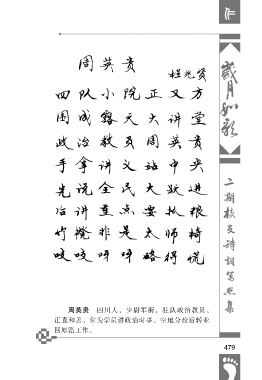 周英贵
程光贤
四队小院正又方
围成露天大讲堂
政治教员周英贵
手拿讲义站中央
先说全民大跃进
后讲重点要抓粮
竹凳非是太师椅
咬咬呀呀硌得慌
周英贵 四川人，少尉军衔，驻队政治教员。
正直和善，常为学员讲政治时事。空地分校后转业
回原籍工作。
岁月如歌
二期校友诗词写照集
479